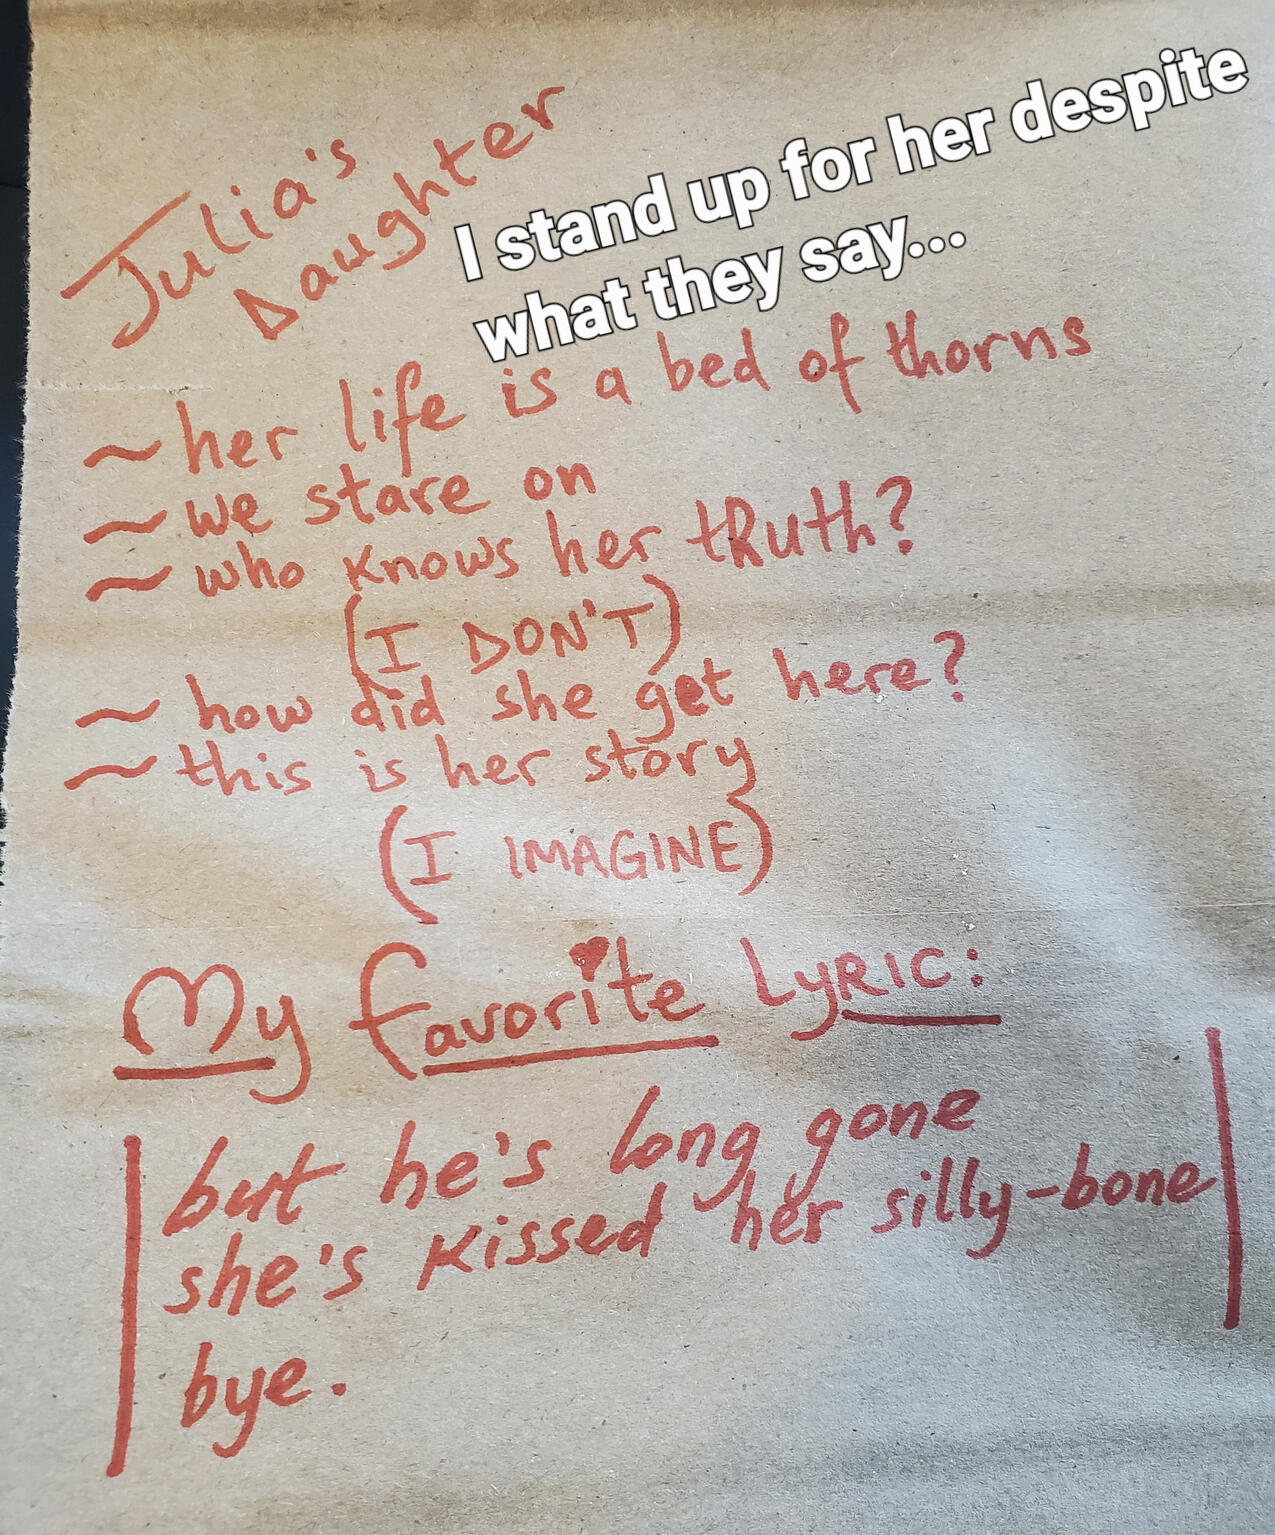 Julia's
Daughter
I stand up for her despite
what they say...
~ her life is a bed of thorns
~ we stare on
~ who knows her tRuth?
(I DON'T)
~ how did she get here?
~ this is her story
(I IMAGINE)
My favorite LyRIC:
but he's long gone
she's kissed her silly-bone
bye.